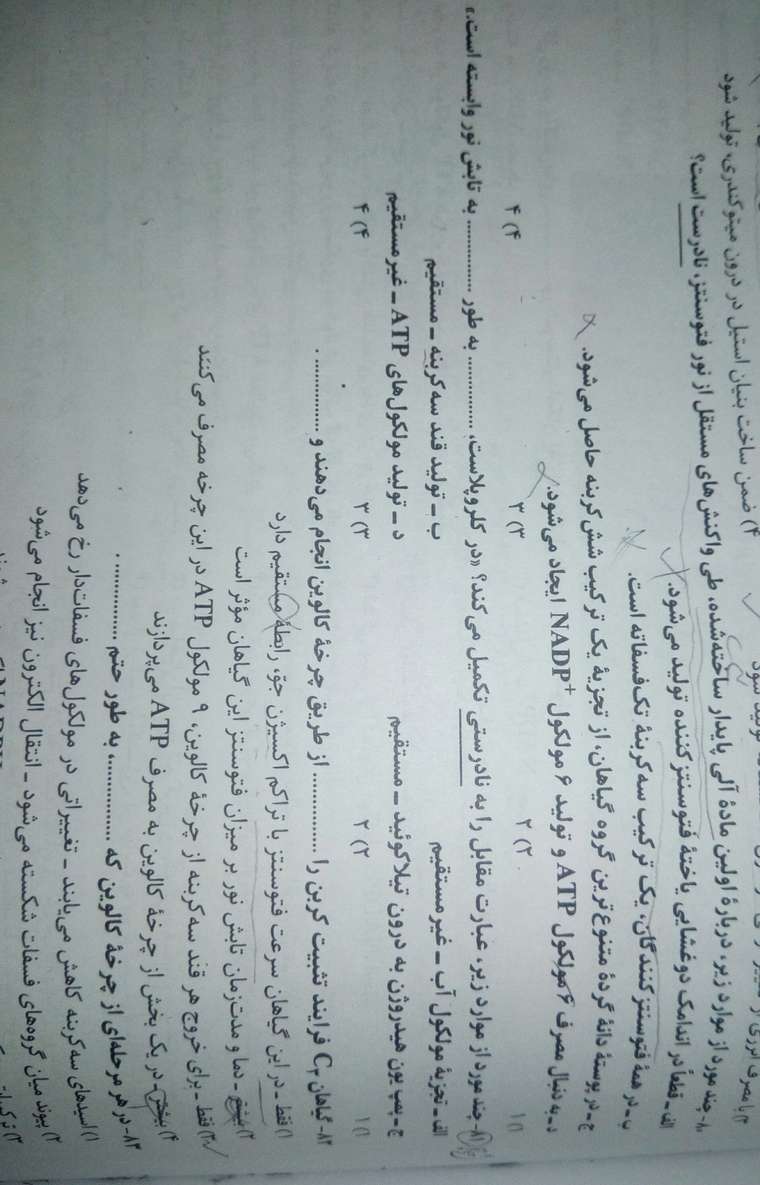 ۴) ضمن ساخت بنیان استیل در درون میتوکندری، تولید شود
۸۰- چند مورد از موارد زیر، دربارهٔ اولین مادهٔ آلی پایدار ساخته‌شده، طی واکنش‌های مستقل از نور فتوسنتز، نادرست است؟
الف - قطعاً در اندامک دوغشایی یاختهٔ فتوسنتزکننده تولید می‌شود.
ب - در همهٔ فتوسنتزکنندگان، یک ترکیب سه‌کربنهٔ تک‌فسفاته است.
ج - در پوستهٔ دانهٔ گردهٔ متنوع‌ترین گروه گیاهان، از تجزیهٔ یک ترکیب شش کربنه حاصل می‌شود.
د - به دنبال مصرف ۶ مولکول ATP و تولید ۶ مولکول NADP+ ایجاد می‌شود.
۱) ۱ ۲) ۲ ۳) ۳ ۴) ۴
۸۱- چند مورد از موارد زیر، عبارت مقابل را به نادرستی تکمیل می‌کند؟ «در کلروپلاست، .............. به طور .............. به تابش نور وابسته است.»
الف - تجزیهٔ مولکول آب - غیرمستقیم ب - تولید قند سه‌کربنه - مستقیم
ج - پمپ یون هیدروژن به درون تیلاکوئید - مستقیم د - تولید مولکول‌های ATP - غیرمستقیم
۱) ۱ ۲) ۲ ۳) ۳ ۴) ۴
۸۲- گیاهان C۳ فرایند تثبیت کربن را .............. از طریق چرخهٔ کالوین انجام می‌دهند و .............. .
۱) فقط - در این گیاهان سرعت فتوسنتز با تراکم اکسیژن جو، رابطهٔ مستقیم دارد
۲) بیشتر - دما و مدت‌زمان تابش نور بر میزان فتوسنتز این گیاهان مؤثر است
۳) فقط - برای خروج هر قند سه‌کربنه از چرخهٔ کالوین، ۹ مولکول ATP در این چرخه مصرف می‌کنند
۴) بیشتر - در یک بخش از چرخهٔ کالوین به مصرف ATP می‌پردازند
۸۳- در هر مرحله‌ای از چرخهٔ کالوین که ..............، به طور حتم .............. .
۱) اسیدهای سه‌کربنه کاهش می‌یابند - تغییراتی در مولکول‌های فسفات‌دار رخ می‌دهد
۲) پیوند میان گروه‌های فسفات شکسته می‌شود - انتقال الکترون نیز انجام می‌شود